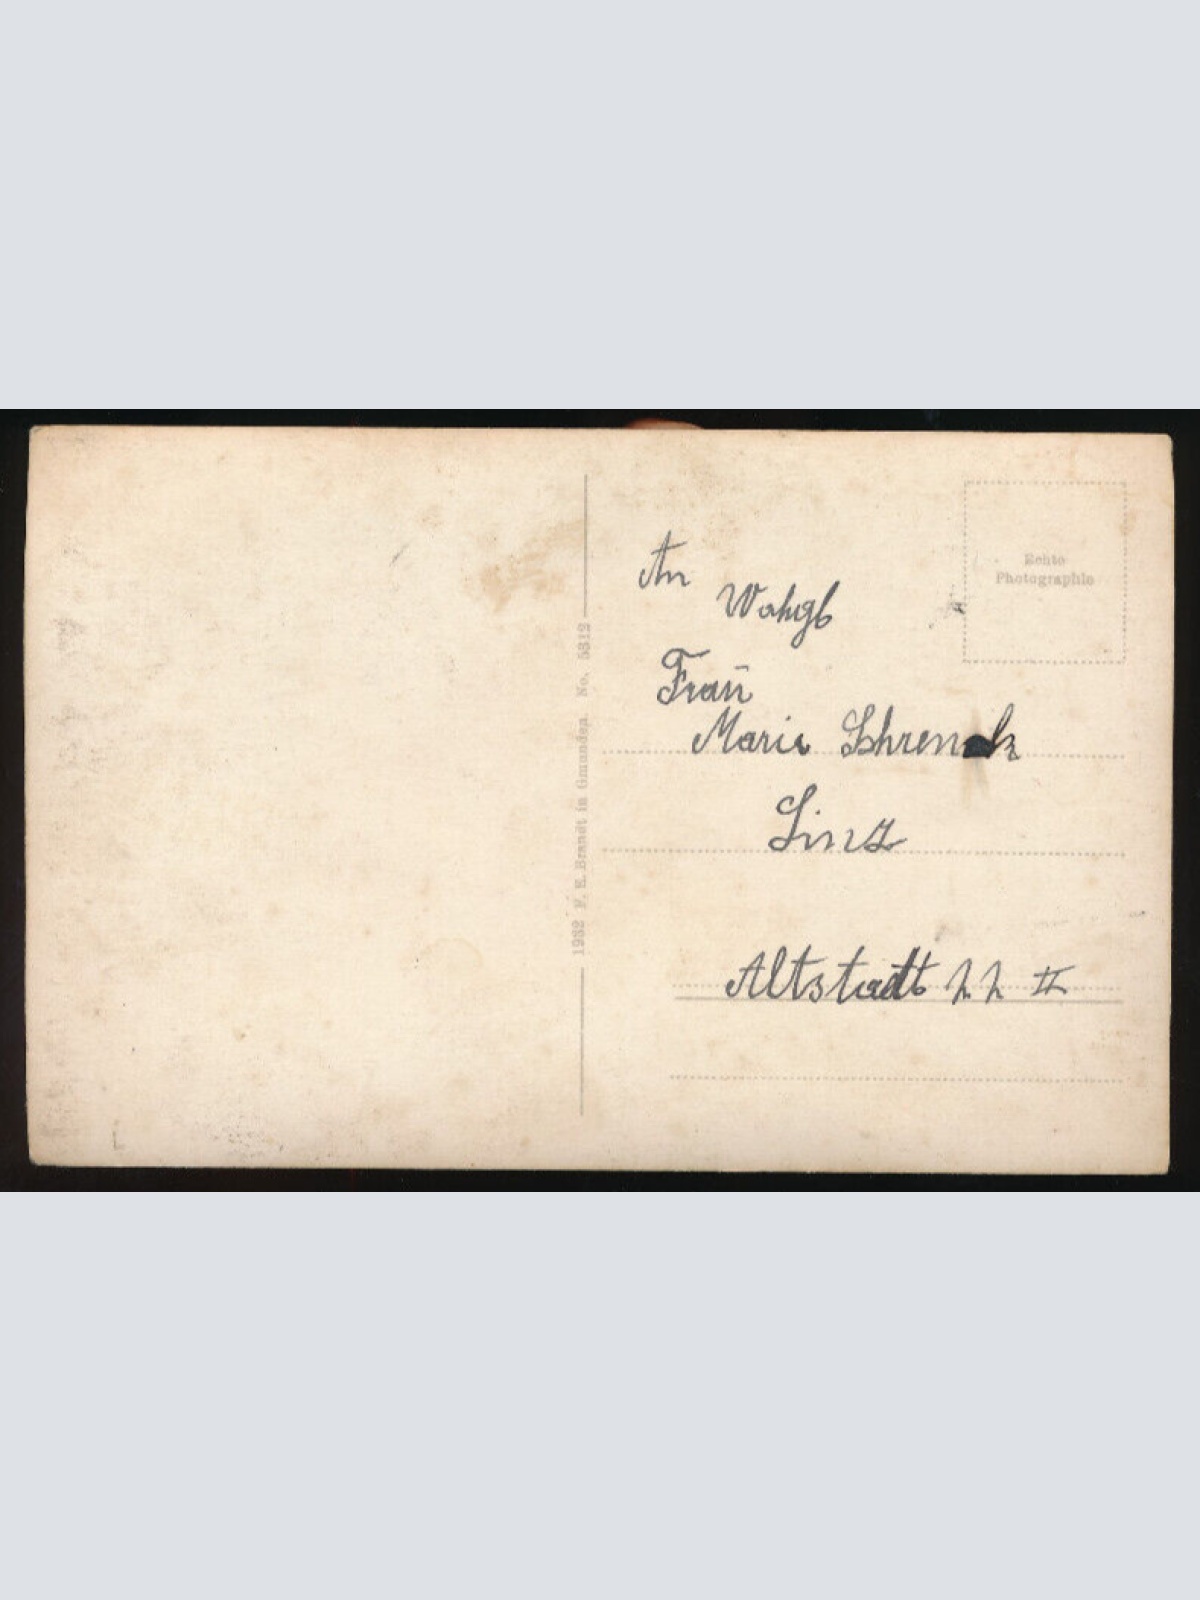 An
Wohlgb
Frau
Marie
Linz
Altstadt II
Echte
Photographie
1932 F. E. Brandt in Gmunden. No. 5312